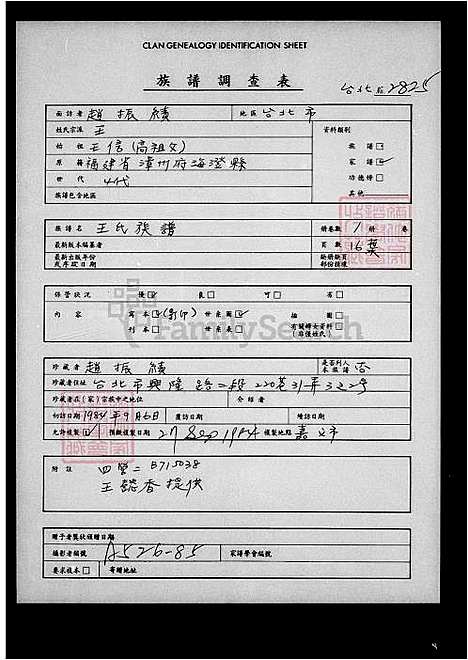 CLAN GENEALOGY IDENTIFICATION SHEET
族譜調查表
台北 2825
面訪者 趙振績 地區 台北市
姓氏宗派 王 資料類別
始祖 王信(高祖父) 族譜
原籍 福建省漳州府海澄縣 家譜
世代 4代 功德榜
族譜包含地區 其他
族譜名 王氏族譜 冊卷數 1 冊 卷
最新版本編纂者 頁數 16葉
最新出版年份
及序跋日期
保管狀況 優 良 可 劣
內容 寫本 (影印) 世系圖 插圖
刊本 世系表
FamilySearch
珍藏者 趙振績 是否列入本族譜 否
珍藏者住址 台北市興隆路二段220巷31弄3之2號
珍藏者在(家)宗族中之地位 介紹者
初訪日期 1984年9月6日 覆訪日期 續訪日期
允許複製 預擬複製日期 27 Sep 1984 複製地點 嘉義市
附註 B715038
王懿香提供
贈予者獎狀頒贈日期
攝影者編號 A526-85 家譜學會編號
要求複本 寄贈地址